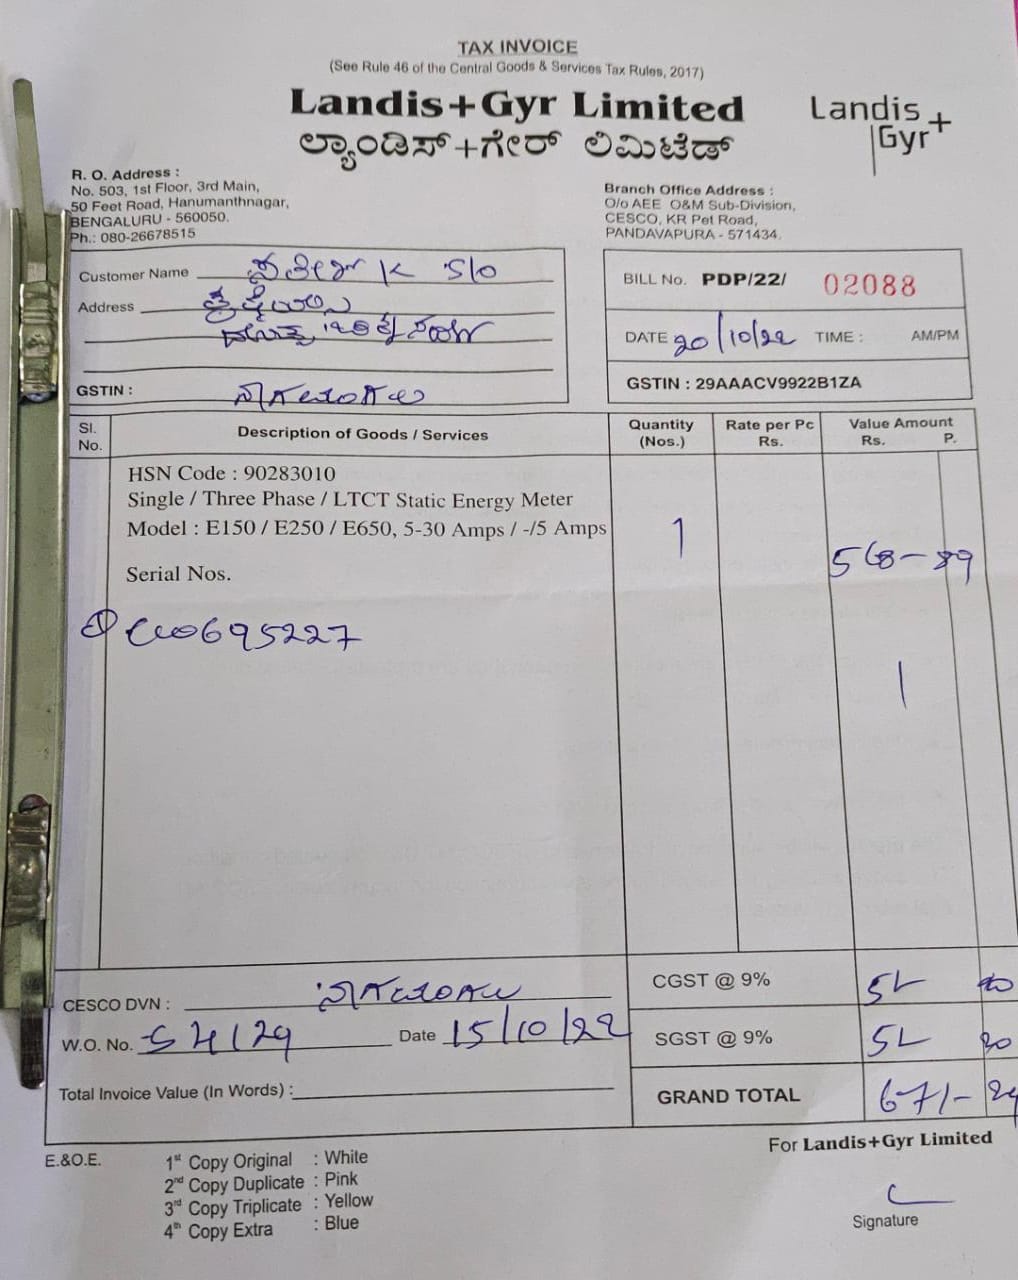 TAX INVOICE
(See Rule 46 of the Central Goods & Services Tax Rules, 2017)
Landis+Gyr Limited
ಲ್ಯಾಂಡಿಸ್+ಗೇರ್ ಲಿಮಿಟೆಡ್
Landis
Gyr+
R. O. Address :
No. 503, 1st Floor, 3rd Main,
50 Feet Road, Hanumanthnagar,
BENGALURU - 560050.
Ph.: 080-26678515
Branch Office Address :
O/o AEE O&M Sub-Division,
CESCO, KR Pet Road,
PANDAVAPURA - 571434.
Customer Name K S/o
Address
GSTIN :
BILL No. PDP/22/ 02088
DATE 20/10/22 TIME : AM/PM
GSTIN : 29AAACV9922B1ZA
Sl. No. Description of Goods / Services Quantity (Nos.) Rate per Pc Rs. Value Amount Rs. P.
HSN Code : 90283010
Single / Three Phase / LTCT Static Energy Meter
Model : E150 / E250 / E650, 5-30 Amps / -/5 Amps 1
568-89
Serial Nos.
0695227
CGST @ 9%
CESCO DVN :
W.O. No. 54/29 Date 15/10/22
SGST @ 9%
Total Invoice Value (In Words) :
GRAND TOTAL 671-
E.&O.E.
For Landis+Gyr Limited
1st Copy Original : White
2nd Copy Duplicate : Pink
3rd Copy Triplicate : Yellow
4th Copy Extra : Blue
Signature